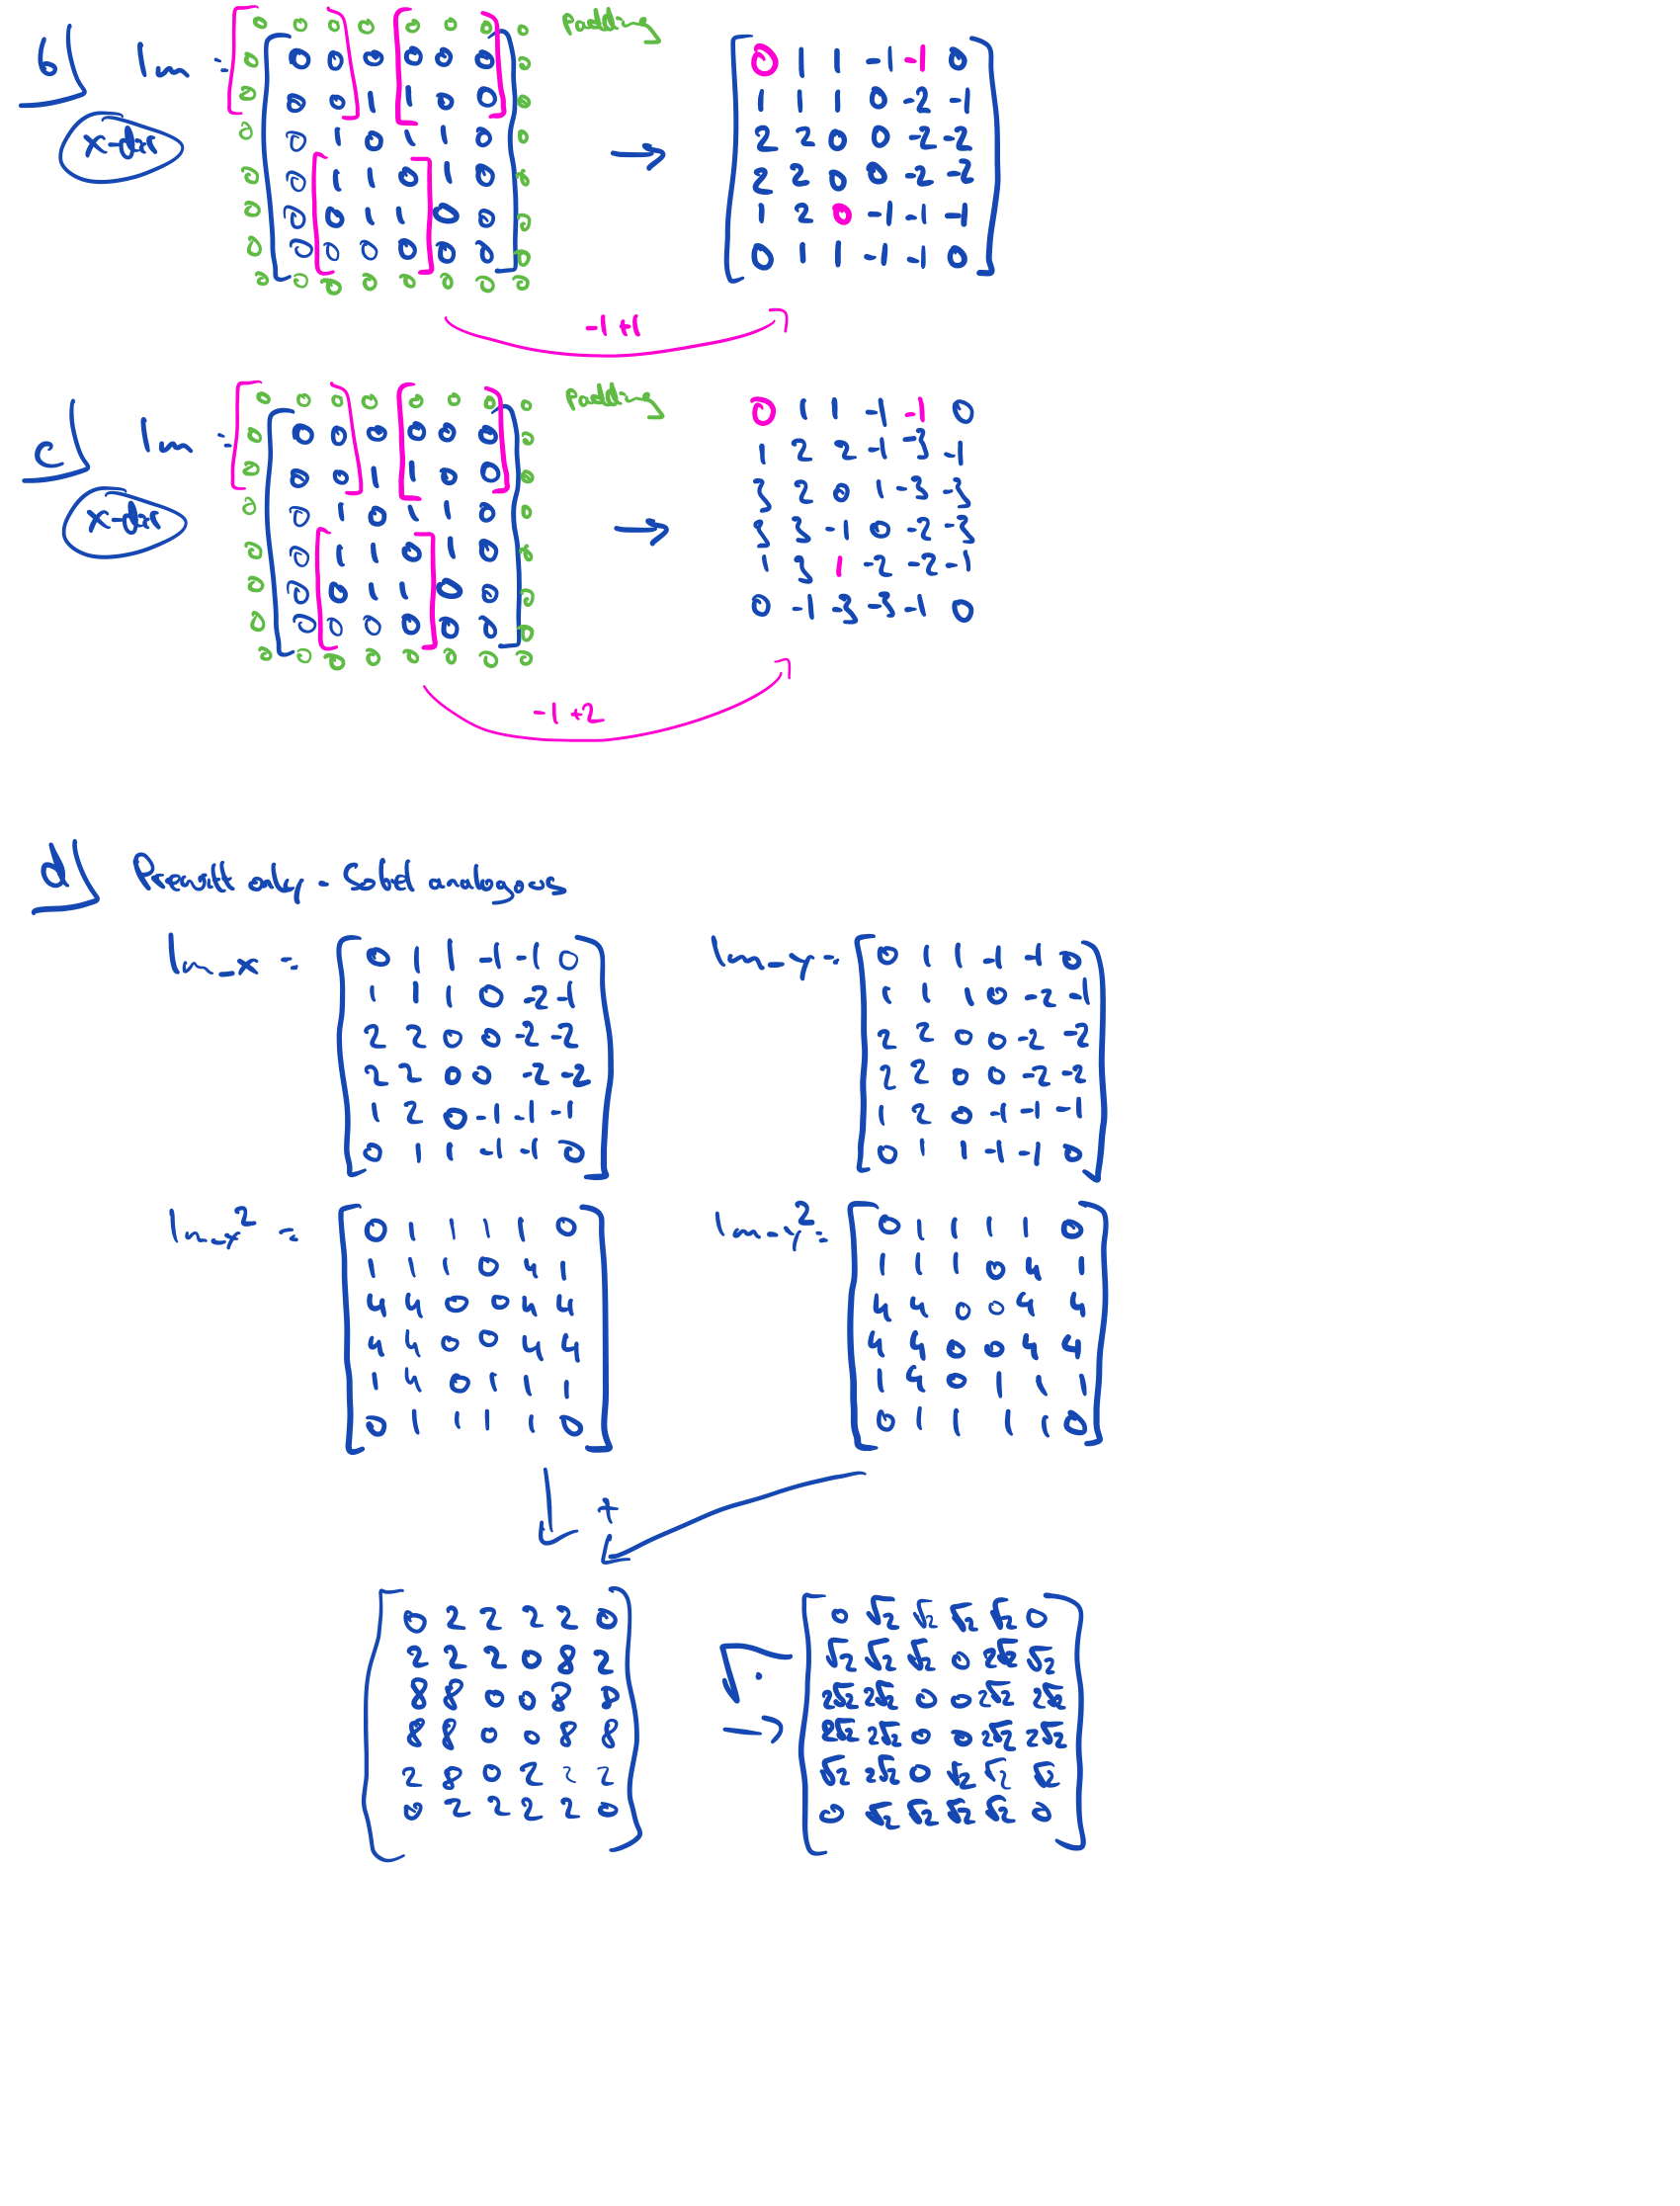 b) Im = x-dir padding
0 0 0 0 0 0 0 0
0 0 0 0 0 0 0 0
0 0 0 1 1 0 0 0
0 0 1 0 1 1 0 0
0 0 1 1 0 1 0 0
0 0 0 1 1 0 0 0
0 0 0 0 0 0 0 0
0 0 0 0 0 0 0 0
→
0 1 1 -1 -1 0
1 1 1 0 -2 -1
2 2 0 0 -2 -2
2 2 0 0 -2 -2
1 2 0 -1 -1 -1
0 1 1 -1 -1 0
-1 +1
c) Im = x-dir padding
0 0 0 0 0 0 0 0
0 0 0 0 0 0 0 0
0 0 0 1 1 0 0 0
0 0 1 0 1 1 0 0
0 0 1 1 0 1 0 0
0 0 0 1 1 0 0 0
0 0 0 0 0 0 0 0
0 0 0 0 0 0 0 0
→
0 1 1 -1 -1 0
1 2 2 -1 -3 -1
3 2 0 1 -3 -3
3 3 -1 0 -2 -3
1 3 1 -2 -2 -1
0 -1 -3 -3 -1 0
-1 +2
d) Prewitt only - Sobel analogous
Im_x =
0 1 1 -1 -1 0
1 1 1 0 -2 -1
2 2 0 0 -2 -2
2 2 0 0 -2 -2
1 2 0 -1 -1 -1
0 1 1 -1 -1 0
Im_y =
0 1 1 -1 -1 0
1 1 1 0 -2 -1
2 2 0 0 -2 -2
2 2 0 0 -2 -2
1 2 0 -1 -1 -1
0 1 1 -1 -1 0
Im_x² =
0 1 1 1 1 0
1 1 1 0 4 1
4 4 0 0 4 4
4 4 0 0 4 4
1 4 0 1 1 1
0 1 1 1 1 0
Im_y² =
0 1 1 1 1 0
1 1 1 0 4 1
4 4 0 0 4 4
4 4 0 0 4 4
1 4 0 1 1 1
0 1 1 1 1 0
+
0 2 2 2 2 0
2 2 2 0 8 2
8 8 0 0 8 8
8 8 0 0 8 8
2 8 0 2 2 2
0 2 2 2 2 0
√· →
0 √2 √2 √2 √2 0
√2 √2 √2 0 2√2 √2
2√2 2√2 0 0 2√2 2√2
2√2 2√2 0 0 2√2 2√2
√2 2√2 0 √2 √2 √2
0 √2 √2 √2 √2 0